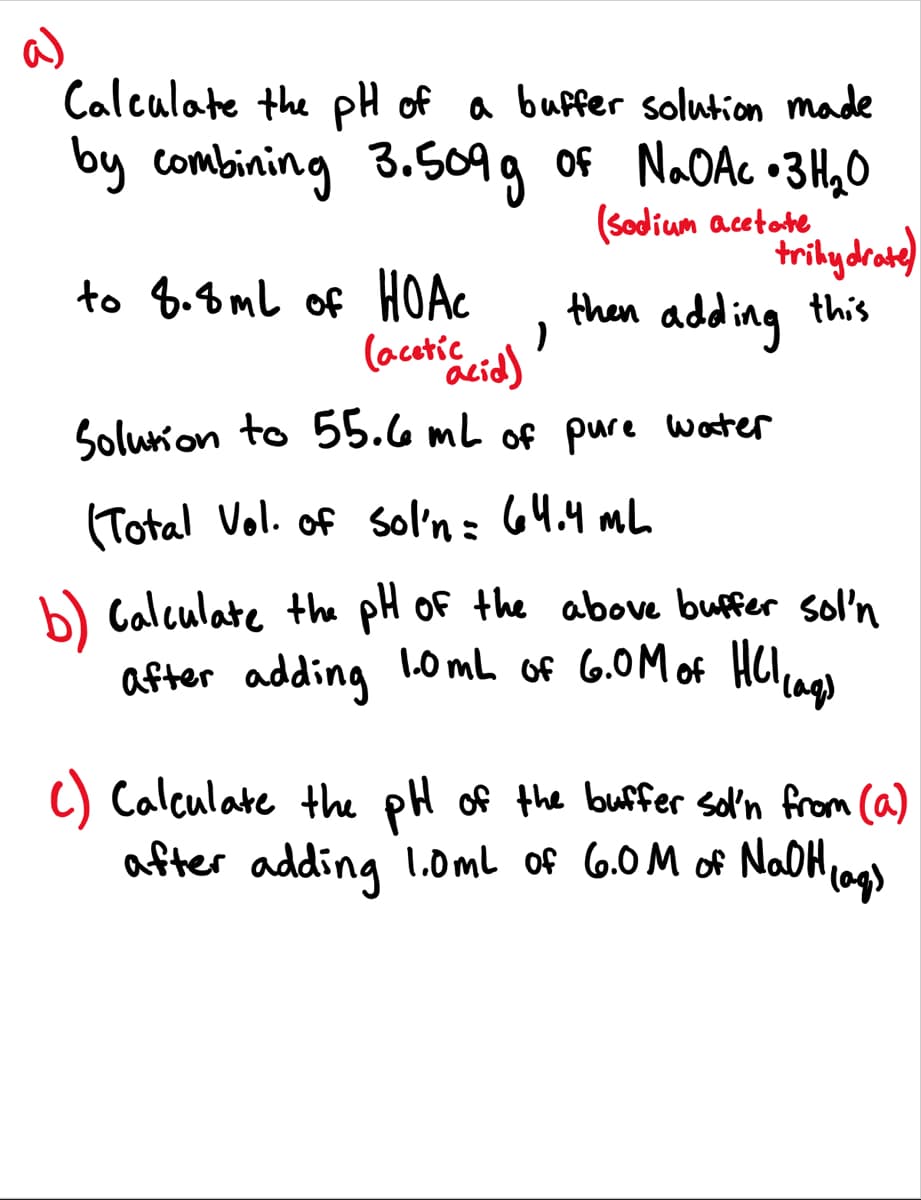 a)
Calculate the pH of a buffer solution made
by combining 3.509 g of NaOAc •3H₂O
(sodium acetate
trihydrate)
to 8.8 mL of HOAc, then adding this
(acetic
acid)
Solution to 55.6 mL of pure water
(Total Vol. of sol'n = 64.4 mL
b) Calculate the pH of the above buffer sol'n
after adding 1.0 mL of 6.0M of HCl(aq)
c) Calculate the pH of the buffer sol'n from (a)
after adding 1.0mL of 6.0 M of NaOH(aq)